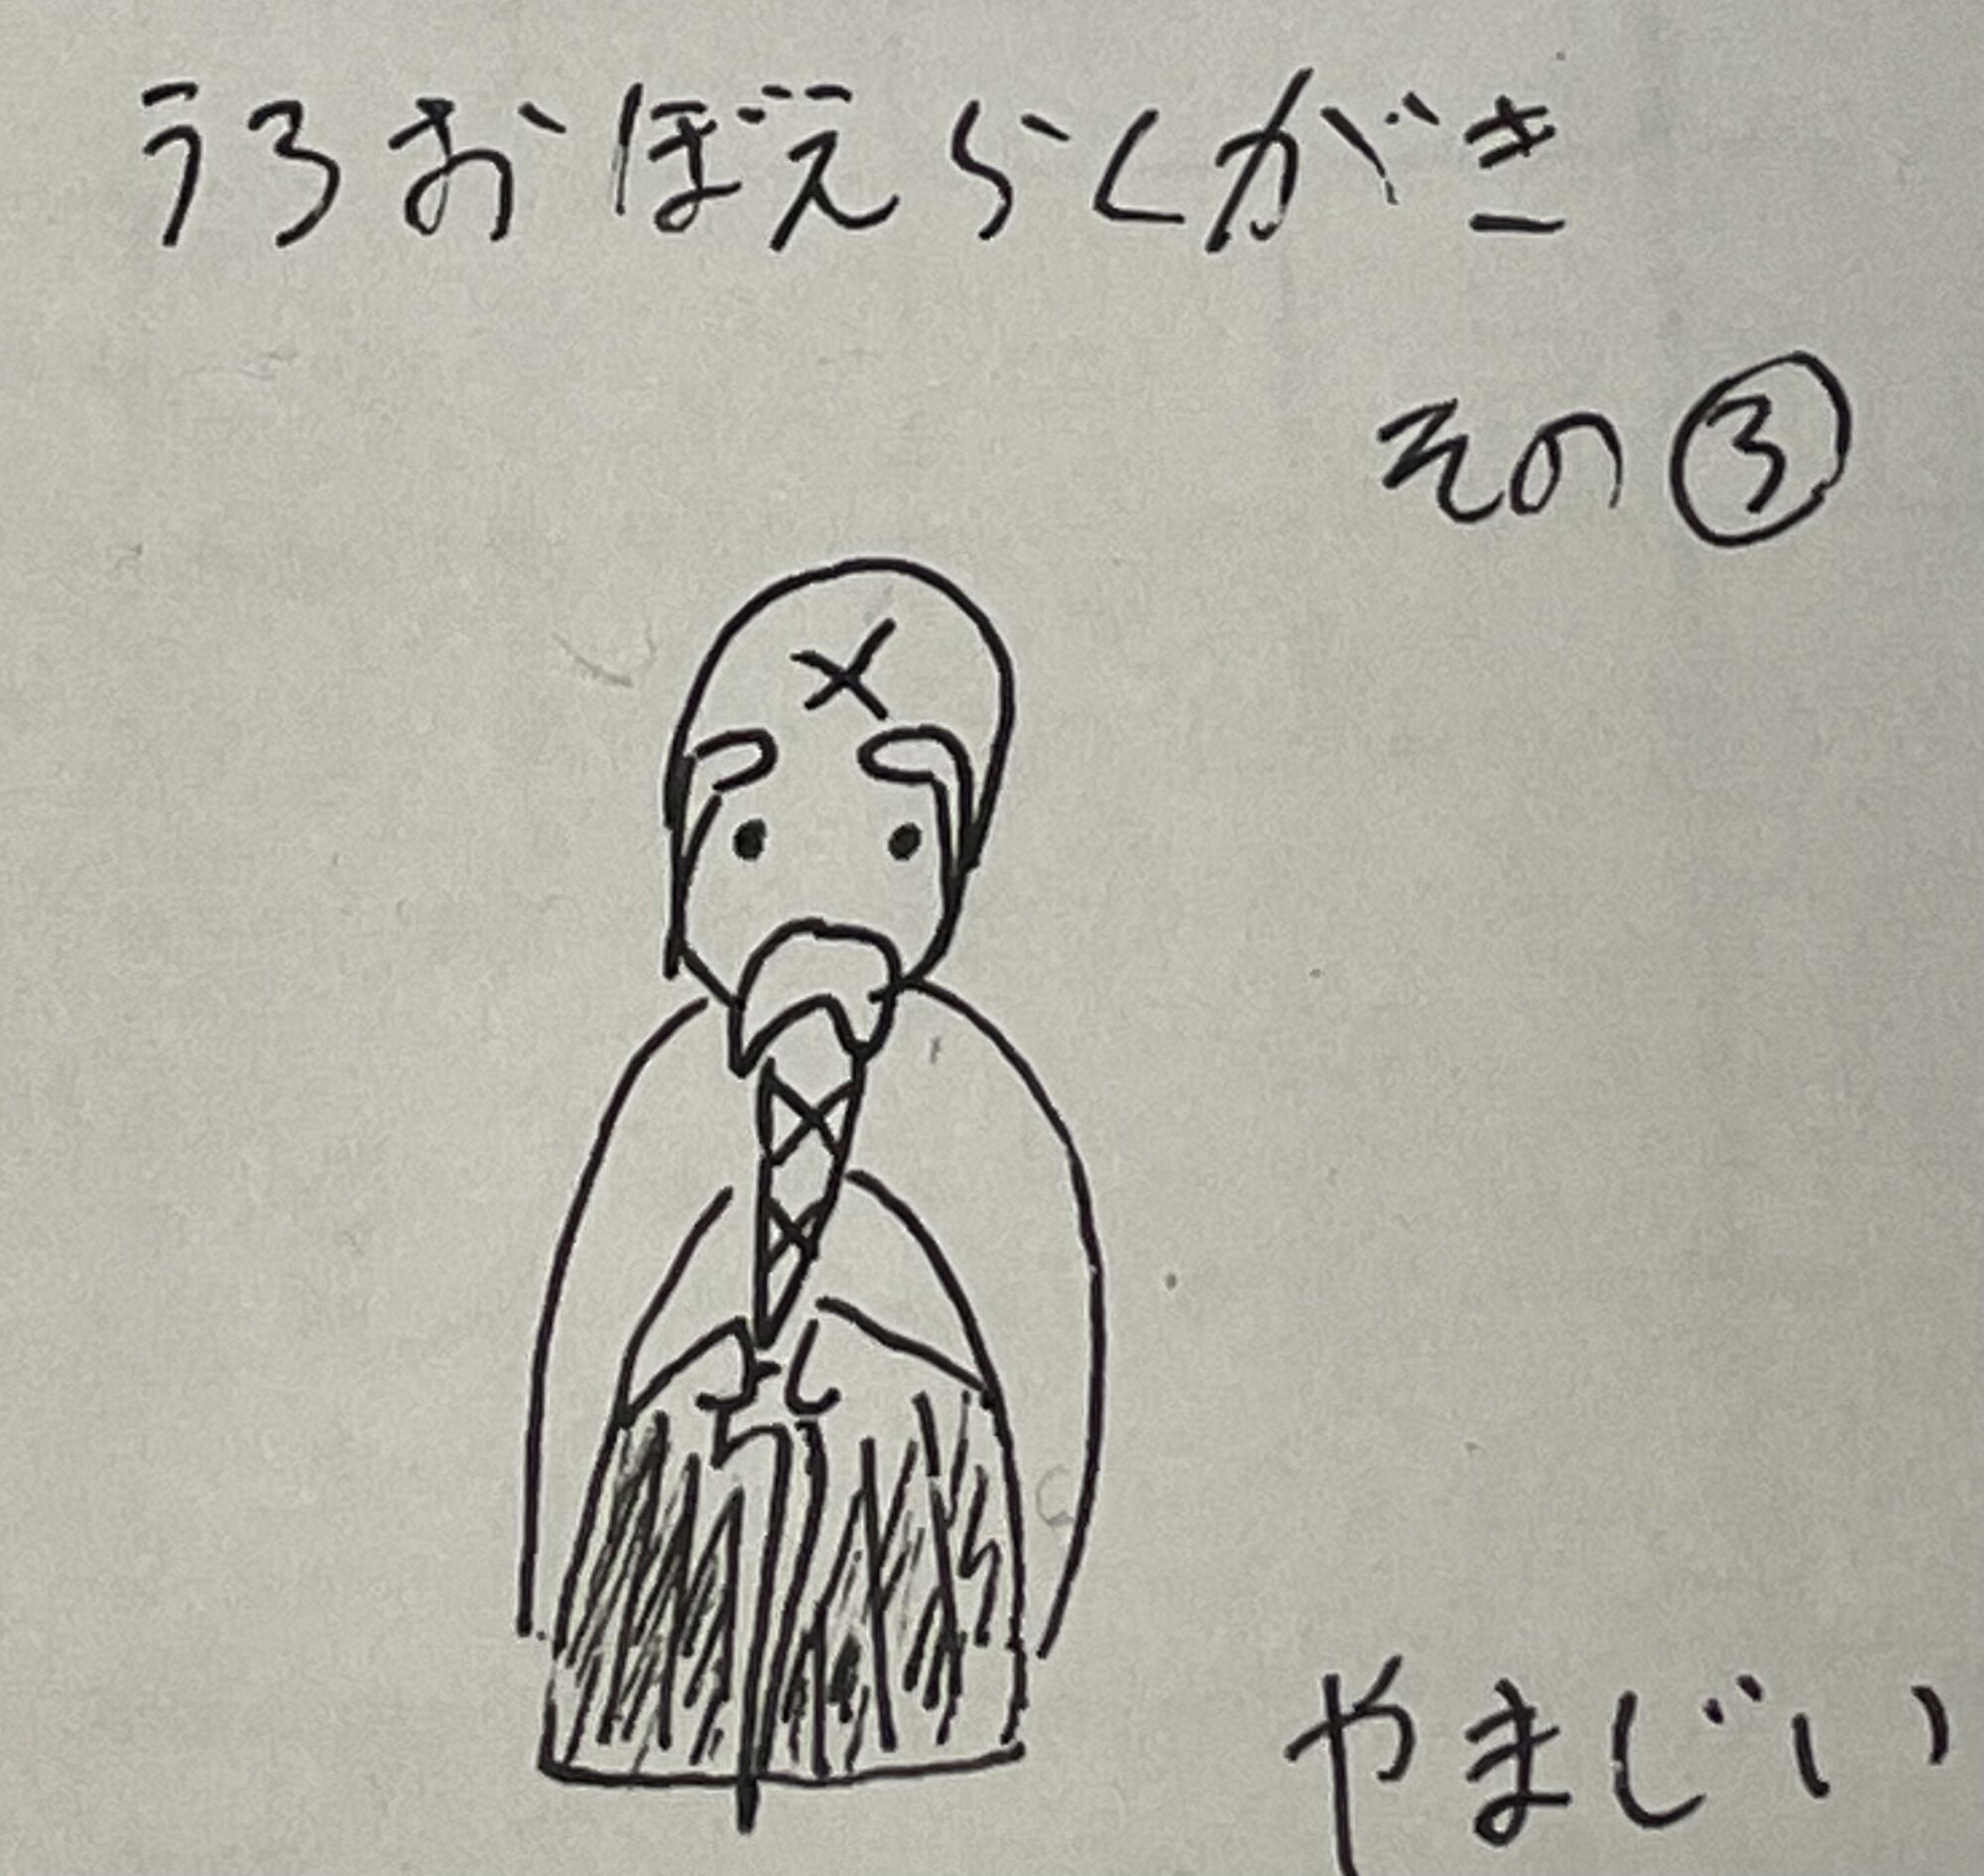 うろおぼえらくがき
その③
やまじい